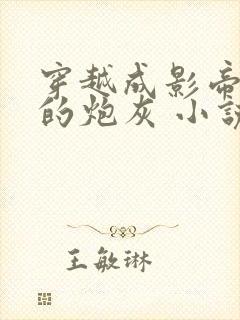 穿越成影帝
的炮灰 小説
王敏琳